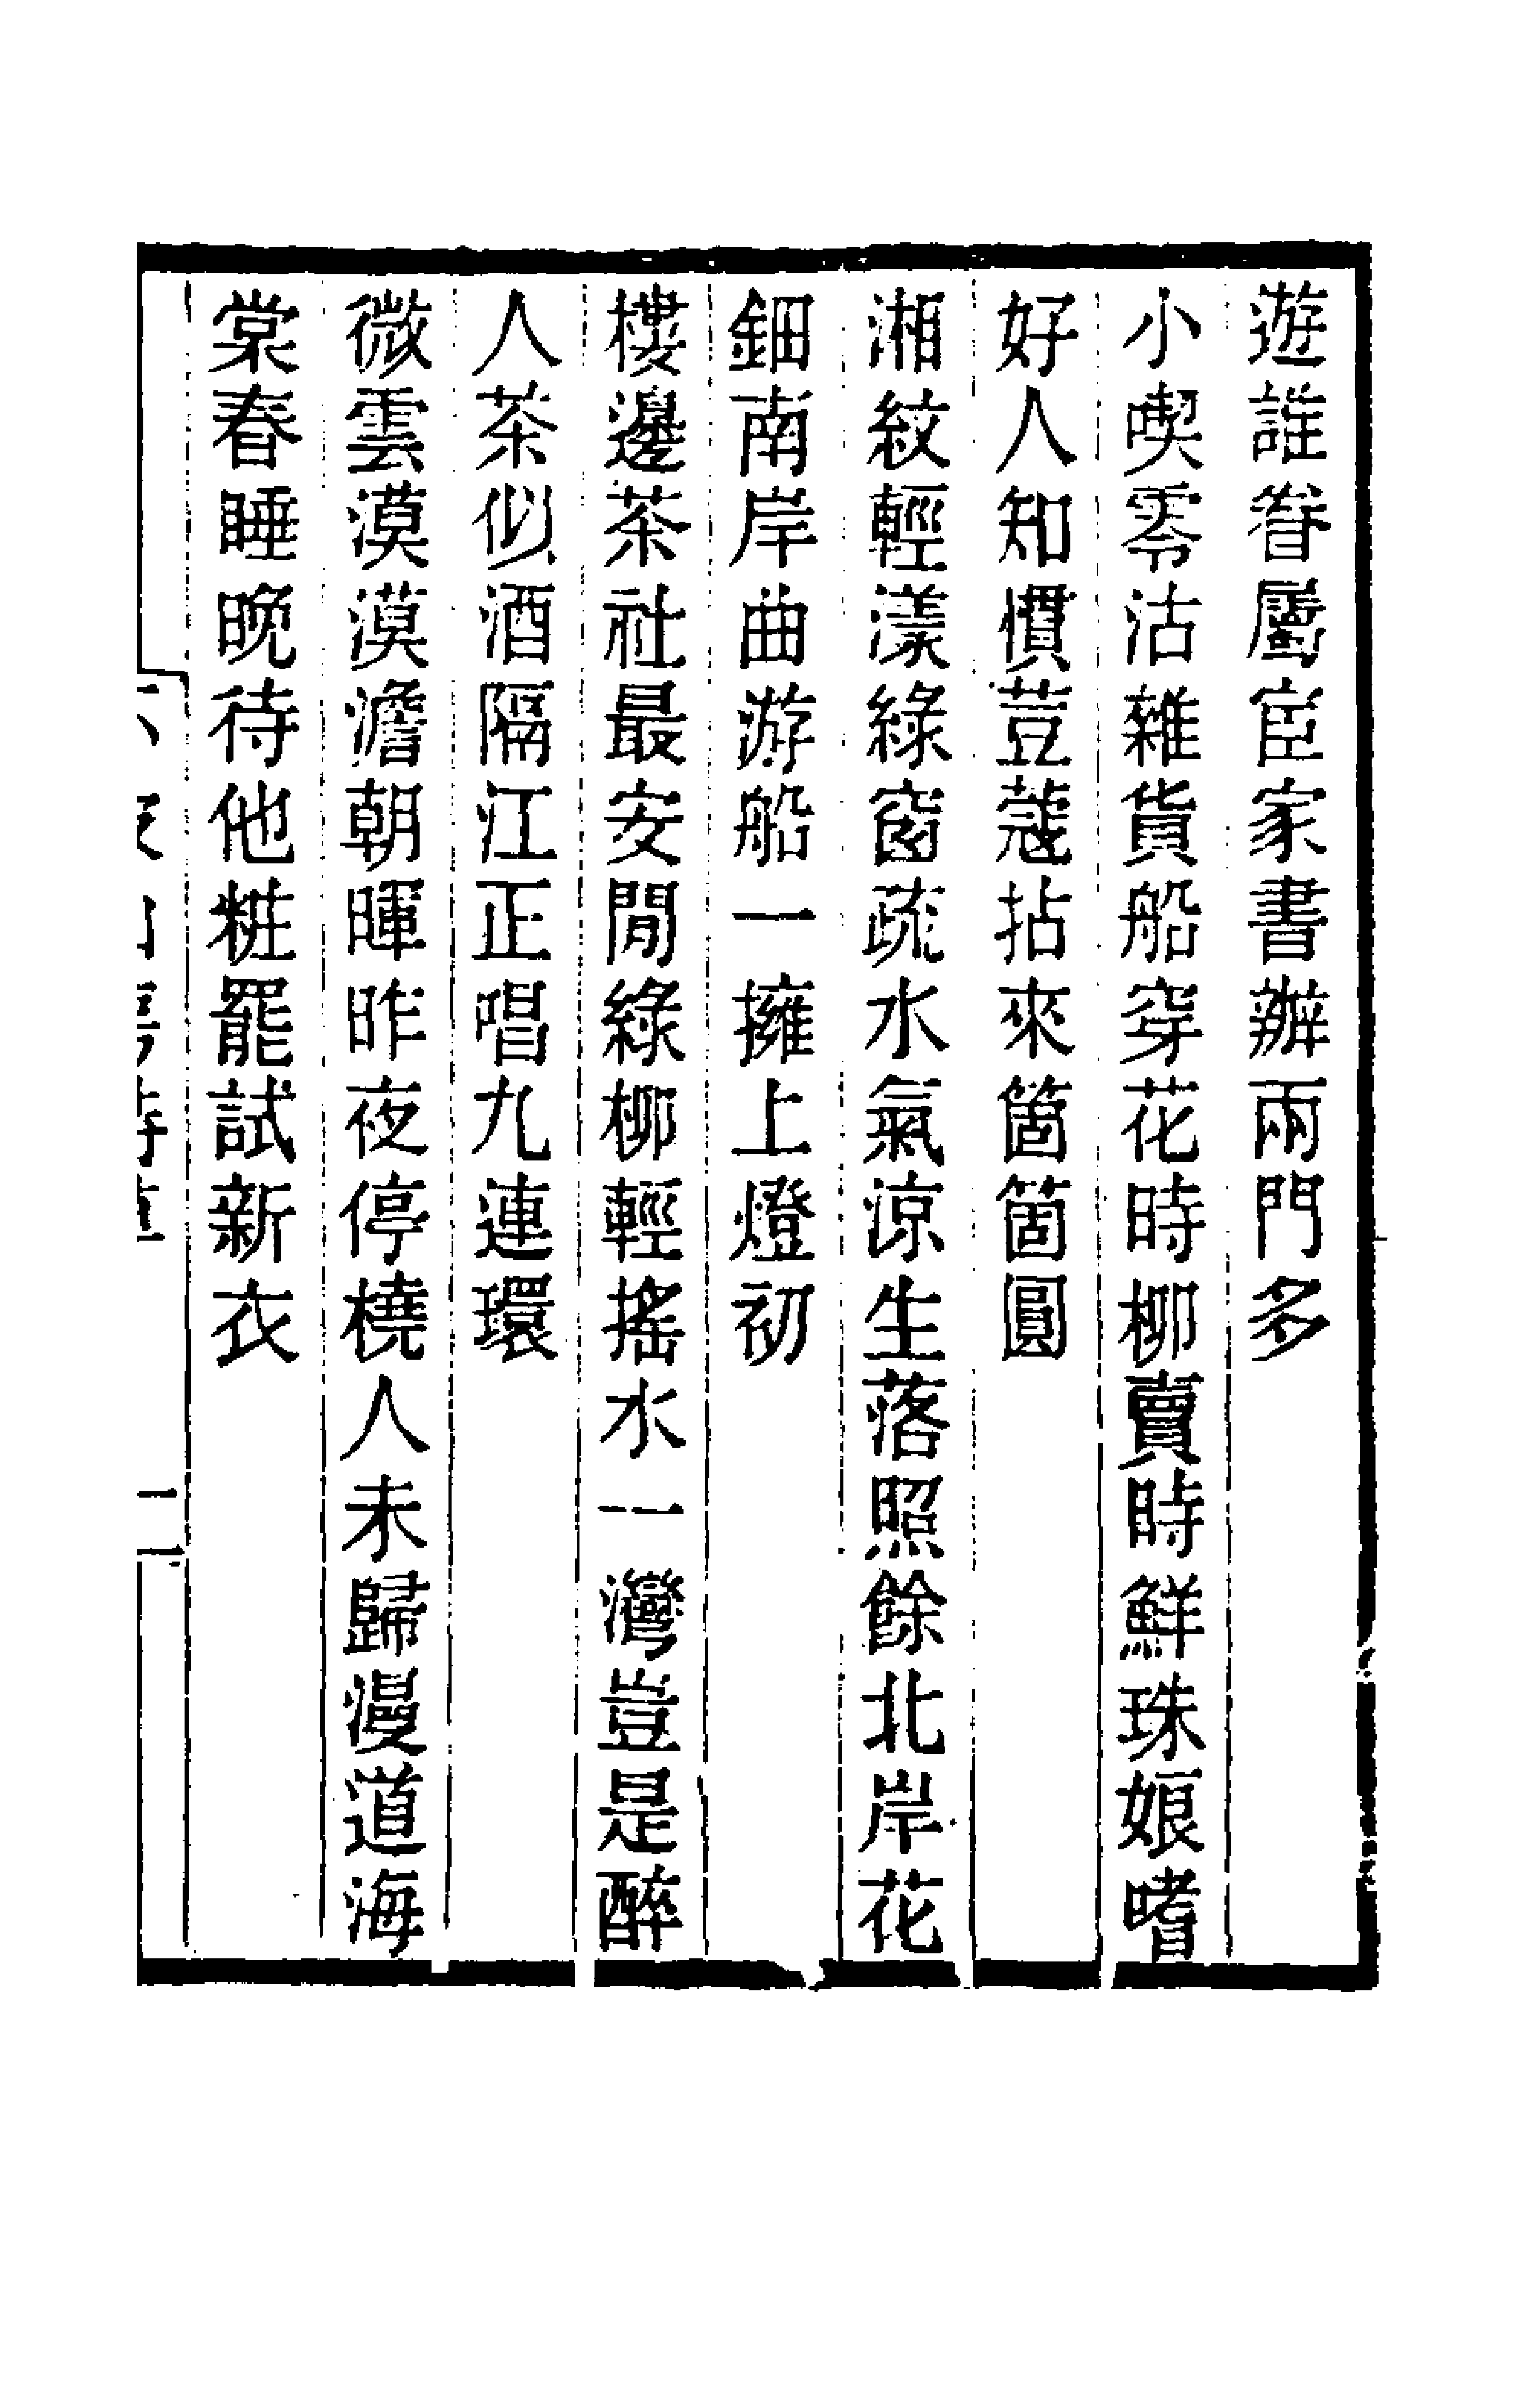 遊誰眷屬宦家書辦兩門多
小喫零沽雜貨船穿花時柳賣時鮮珠娘嗜
好人知慣荳蔻拈來箇箇圓
湘紋輕漾綠窗疏水氣涼生落照餘北岸花
鈿南岸曲游船一擁上燈初
樓邊茶社最安閒綠柳輕搖水一灣豈是醉
人茶似酒隔江正唱九連環
微雲漠漠澹朝暉昨夜停橈人未歸漫道海
棠春睡晚待他粧罷試新衣